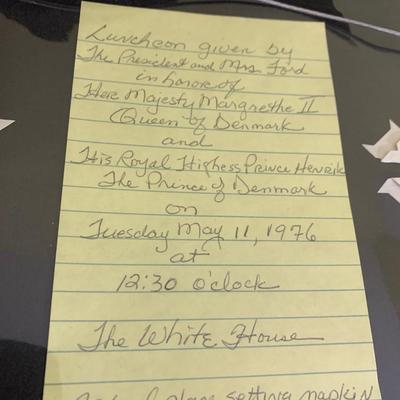 Luncheon given by
The President and Mrs Ford
in honor of
Here Majesty Margrethe II
Queen of Denmark
and
His Royal Highess Prince Henrik
The Prince of Denmark
on
Tuesday May 11, 1976
at
12:30 o'clock
The White House
place setting napkin